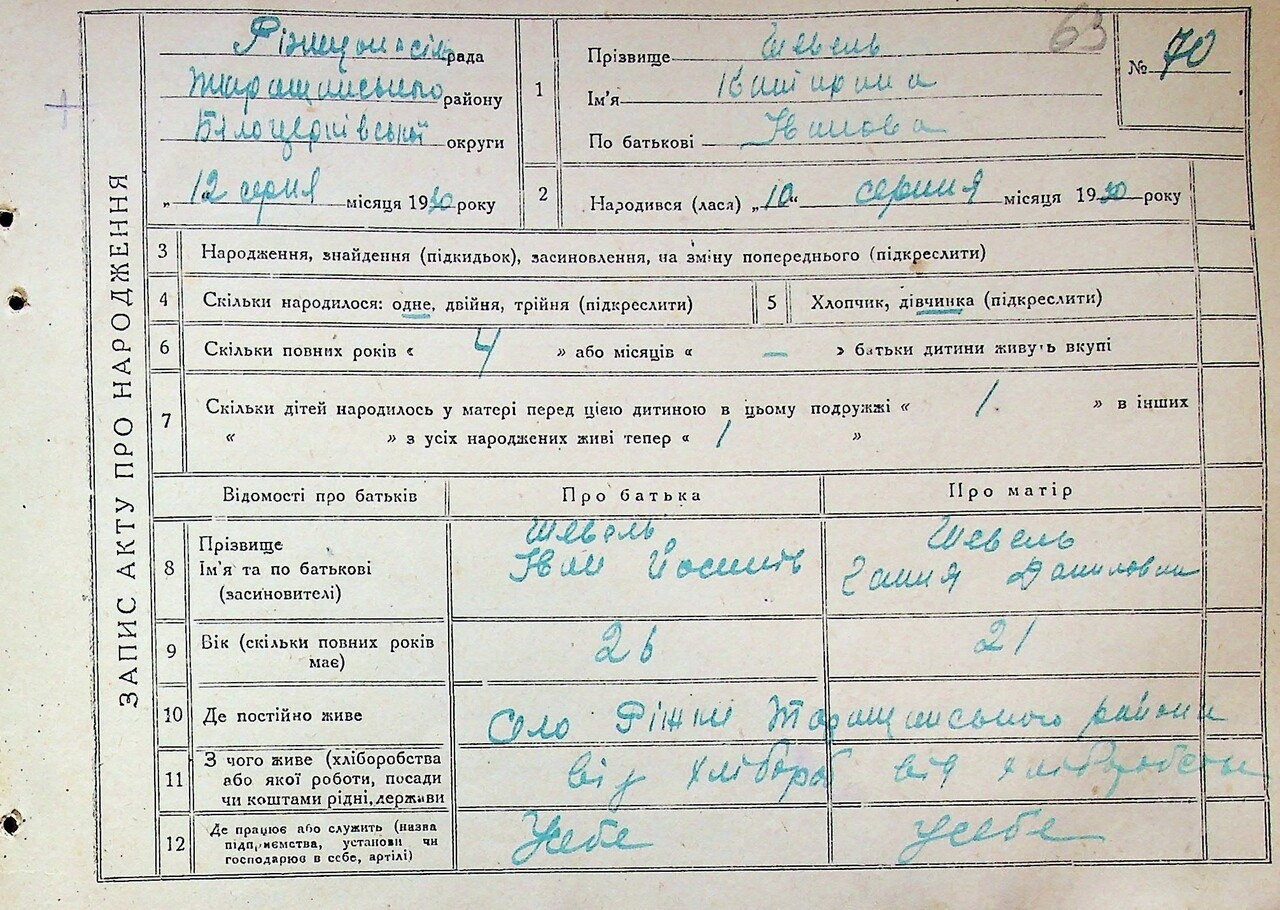 ЗАПИС АКТУ ПРО НАРОДЖЕННЯ
63
№ 70
рада
Таращанського району
Білоцерківської округи
„12 серпня місяця 1930 року
1
Прізвище Шевель
Ім'я Катирина
По батькові Іванова
2
Народився (лася) „10“ серпня місяця 1930 року
3 Народження, знайдення (підкидьок), засиновлення, на зміну попереднього (підкреслити)
4 Скільки народилося: одне, двійня, трійня (підкреслити)
5 Хлопчик, дівчинка (підкреслити)
6 Скільки повних років « 4 » або місяців « — » батьки дитини живуть вкупі
7 Скільки дітей народилось у матері перед цією дитиною в цьому подружжі « 1 » в інших
« » з усіх народжених живі тепер « 1 »
Відомості про батьків Про батька Про матір
8 Прізвище
Ім'я та по батькові
(засиновителі)
Шевель
Іван
Шевель
Гания Даниловна
9 Вік (скільки повних років
має)
26 21
10 Де постійно живе Село Ріжки Таращанського района
11 З чого живе (хліборобства
або якої роботи, посади
чи коштами рідні, держави
від хлібороб від хліборобства
12 Де працює або служить (назва
підприємства, установи чи
господарює в себе, артілі)
Усебе Усебе